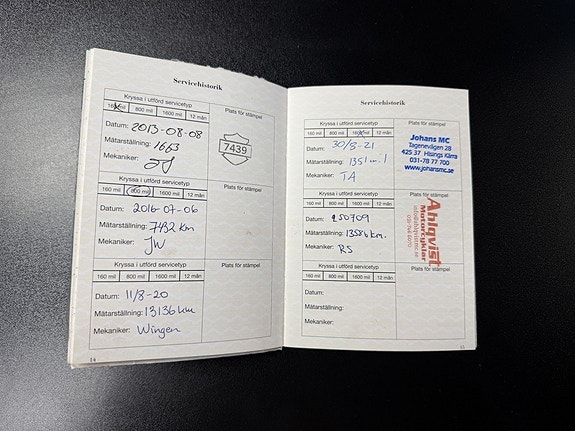 Servicehistorik
Kryssa i utförd servicetyp
160 mil 800 mil 1600 mil 12 mån
Plats för stämpel
Datum: 2013-08-08
Mätarställning: 1663
Mekaniker:
7439
Kryssa i utförd servicetyp
160 mil 800 mil 1600 mil 12 mån
Plats för stämpel
Datum: 2016-07-06
Mätarställning: 7432 km
Mekaniker: JW
Kryssa i utförd servicetyp
160 mil 800 mil 1600 mil 12 mån
Plats för stämpel
Datum: 11/8-20
Mätarställning: 13136 km
Mekaniker: Wingen
14
Servicehistorik
Kryssa i utförd servicetyp
160 mil 800 mil 1600 mil 12 mån
Plats för stämpel
Datum: 30/8-21
Mätarställning: 1351 mil
Mekaniker: TA
Johans MC
Tagenevägen 28
425 37 Hisings Kärra
031-78 77 700
www.johansmc.se
Kryssa i utförd servicetyp
160 mil 800 mil 1600 mil 12 mån
Plats för stämpel
Datum: 250709
Mätarställning: 13586 km.
Mekaniker: RS
Ahlqvist
Motorcyklar
Kryssa i utförd servicetyp
160 mil 800 mil 1600 mil 12 mån
Plats för stämpel
Datum:
Mätarställning:
Mekaniker:
15